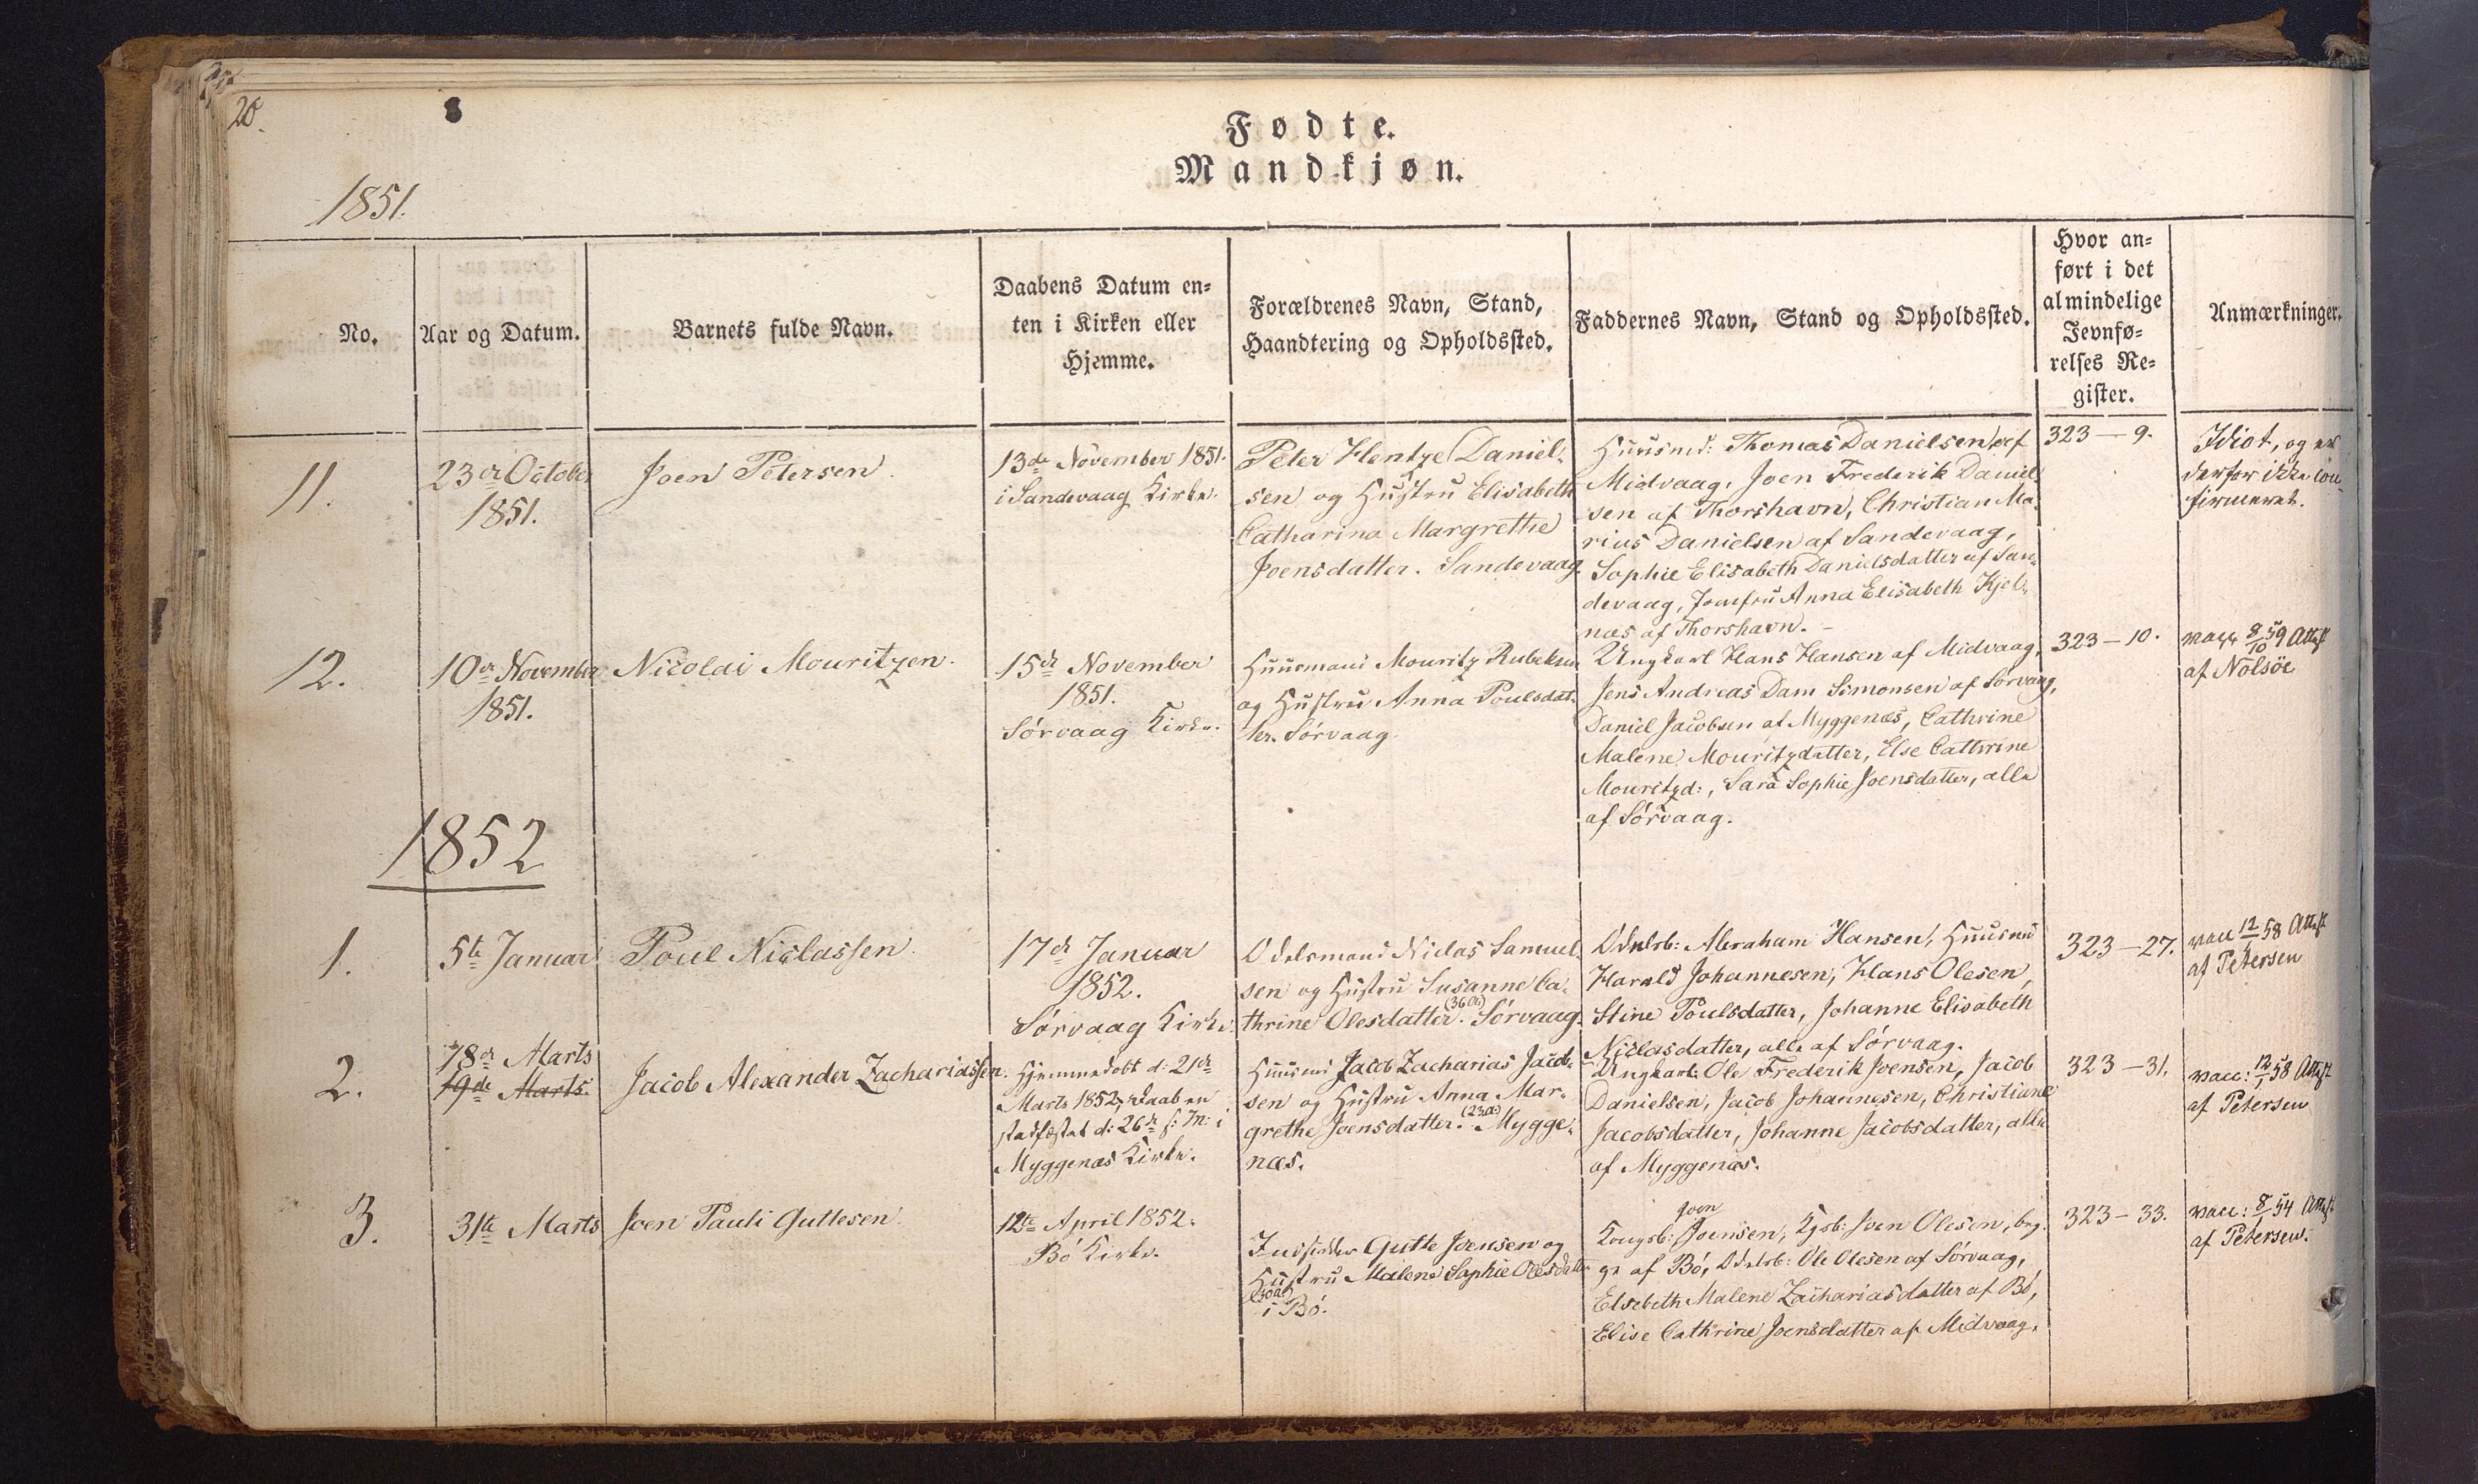 20.
Fødte.
Mandkjøn.
1851.
No.
Aar og Datum.
Barnets fulde Navn.
Daabens Datum en-
ten i Kirken eller
Hjemme.
Forældrenes Navn, Stand,
Haandtering og Opholdssted.
Faddernes Navn, Stand og Opholdssted.
Hvor an-
ført i det
almindelige
Jevnfø-
relses Re-
gister.
Anmærkninger.
11.
23de October
1851.
Joen Petersen.
13de November 1851.
i Sandevaag Kirke.
Peter Hentze Daniel-
sen og Hustru Elisabeth
Catharina Margrethe
Joensdatter. Sandevaag.
Huusmd: Thomas Danielsen af
Midvaag, Joen Frederik Daniel
sen af Thorshavn, Christian Ma-
rius Danielsen af Sandevaag,
Sophie Elisabeth Danielsdatter af San-
devaag, Jomfru Anna Elisabeth Kjel-
næs af Thorshavn. -
323 - 9.
Idiot, og er
derfor ikke con-
firmeret.
12.
10de November
1851.
Nicolai Mouritzen.
15de November
1851.
Sörvaag Kirke.
Huusmand Mouritz Rubeksen
og Hustru Anna Poulsdat-
ter. Sörvaag.
Ungkarl Hans Hansen af Midvaag,
Jens Andreas Dam Simonsen af Sörvaag,
Daniel Jacobsen af Myggenæs, Cathrine
Malene Mouritzdatter, Else Cathrine
Mouritzd:, Sara Sophie Joensdatter, alle
af Sörvaag.
323 - 10.
vacc 8/10 59 Attest
af Nolsöe
1852
1.
5te Januar
Poul Niclassen.
17de Januar
1852.
Sörvaag Kirke.
Odelsmand Niclas Samuel-
sen og Hustru Susanne Ca-
thrine Olesdatter (36 Aa). Sörvaag.
Odelsb: Abraham Hansen, Huusmd
Harald Johannesen, Hans Olesen,
Stine Poulsdatter, Johanne Elisabeth
Niclasdatter, alle af Sörvaag.
323 - 27.
vacc 12/1 58 Attest
af Petersen
2.
18de Marts
19de Marts.
Jacob Alexander Zachariassen.
Hjemmedöbt d: 21de
Marts 1852, Daaben
stadfæstet d: 26de s: M: i
Myggenæs Kirke.
Huusmd Jacob Zacharias Jacob-
sen og Hustru Anna Mar-
grethe Joensdatter (23 a:). Mygge-
næs.
Ungkarl: Ole Frederik Joensen, Jacob
Danielsen, Jacob Johannesen, Christiane
Jacobsdatter, Johanne Jacobsdatter, alle
af Myggenæs.
323 - 31.
vacc: 12/1 58 Attest
af Petersen
3.
31te Marts
Joen Pauli Guttesen.
12te April 1852.
Bö Kirke.
Indsidder Gutte Joensen og
Hustru Malene Sophie Olesdatter
(30 a)
i Bö.
Joen
Kongsb: Joensen, Kgsb: Joen Olesen, beg-
ge af Bö, Odelsb: Ole Olesen af Sörvaag,
Elsebeth Malene Zachariasdatter af Bö,
Elise Cathrine Joensdatter af Midvaag.
323 - 33.
vacc: 8/ 54 Attest
af Petersen.